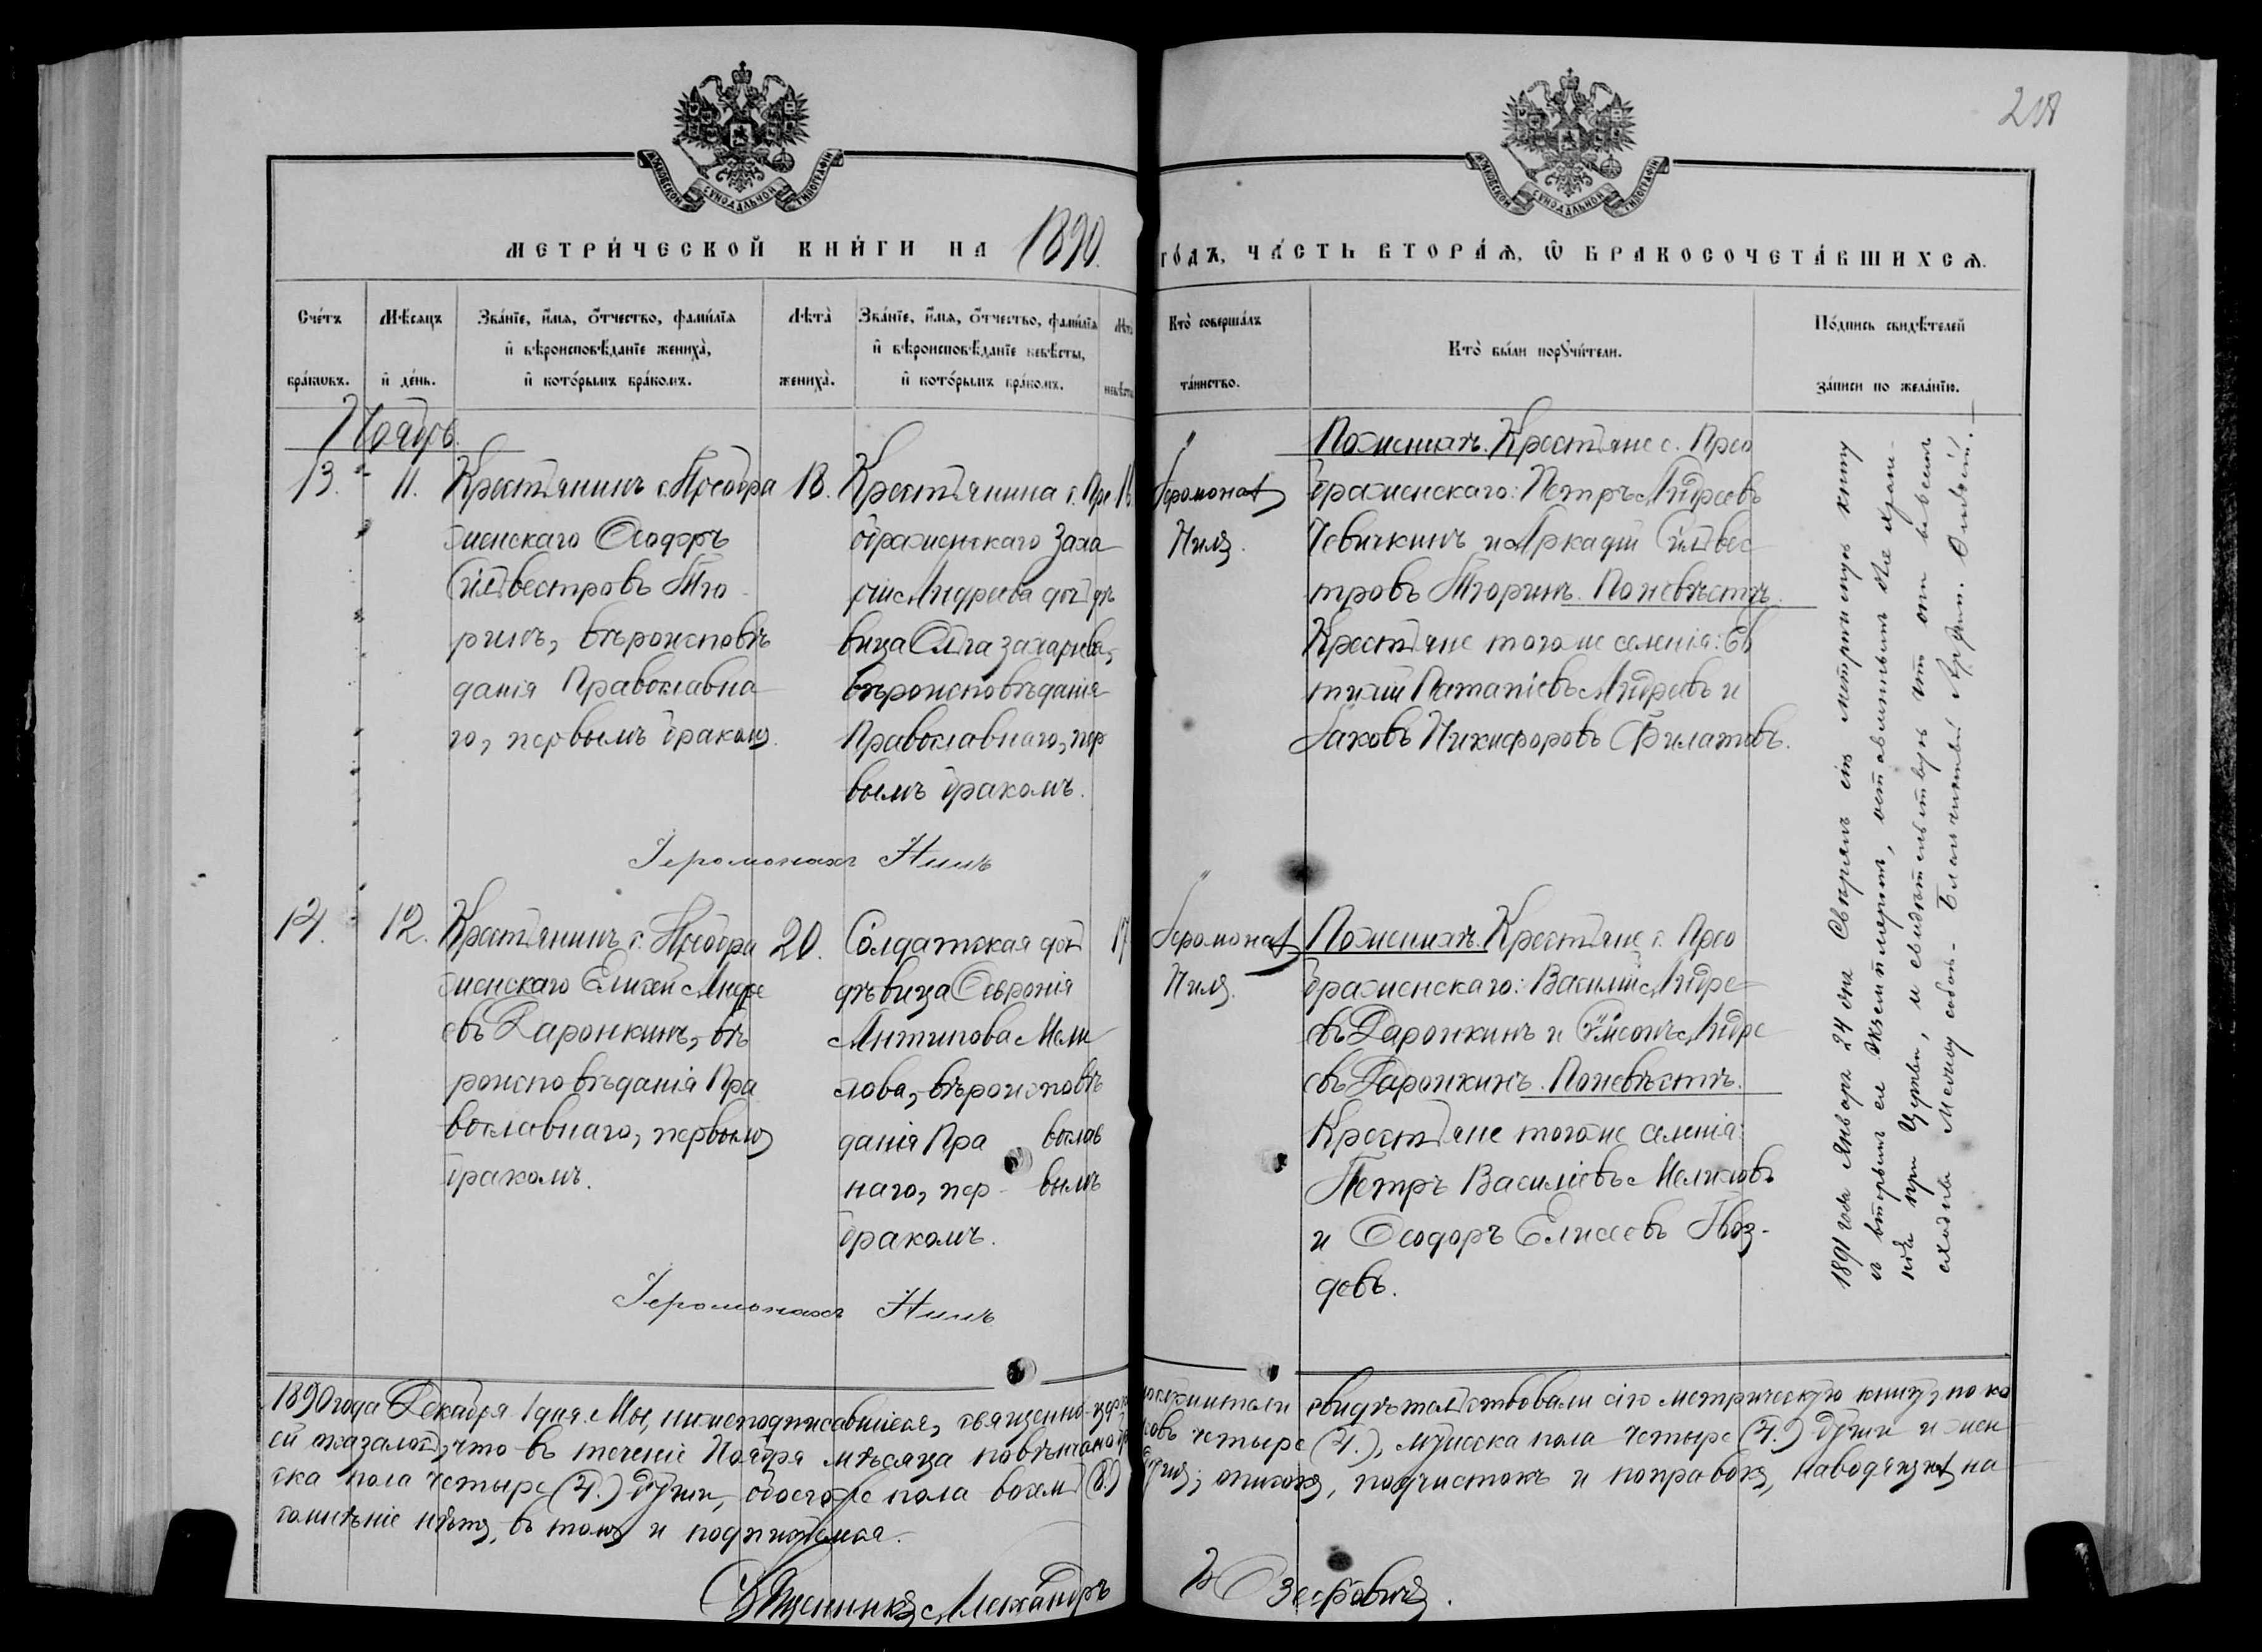 218
ХАРЬКОВСКОЙ СѴНОДАЛЬНОЙ ТИПОГРАФІИ
МЕТРИ́ЧЕСКОЙ КНИ́ГИ НА 1890.
ГО́ДЪ, ЧА́СТЬ ВТОРА́Я, Ѡ БРАКОСОЧЕТА́ВШИХСЯ.
Сче́тъ бра́кωвъ.
Мѣ́сяцъ и҆ де́нь.
Зва́нїе, и҆́мя, ѻ҆́тчество, фами́лїя
и҆ вѣроисповѣ́данїе жениха̀,
и҆ кото́рымъ бра́комъ.
Лѣта̀ жениха̀.
Зва́нїе, и҆́мя, ѻ҆́тчество, фами́лїя
и҆ вѣроисповѣ́данїе невѣ́сты,
и҆ кото́рымъ бра́комъ.
Кто̀ соверша́лъ та́инство.
Кто̀ бы́ли порꙋчи́тели.
По́дпись свидѣ́телей
за́писи по жела́нїю.
Ноябрь.
13. 11.
Крестьянинъ с. Преобра
женскаго Ѳеодоръ
Сильвестровъ Тю
ринъ, вѣроисповѣ
данія Православна
го, первымъ бракомъ.
18.
Крестьянина с. Пре
ображенскаго Заха
рія Андреева дочь дѣ
вица Ольга Захарьева,
вѣроисповѣданія
Православнаго, пер
вымъ бракомъ.
16
Іеромонахъ
Нилъ.
По женихѣ. Крестьяне с. Прео
браженскаго: Петръ Андреевъ
Певичкинъ и Аркадій Сильвес
тровъ Тюринъ. По невѣстѣ.
Крестьяне того же селенія: Ев
тихій Патапіевъ Андреевъ и
Іаковъ Никифоровъ Филатовъ.
Іеромонахъ Нилъ
14. 12.
Крестьянинъ с. Преобра
женскаго Елисей Андре
евъ Даронкинъ, вѣ
роисповѣданія Пра
вославнаго, первымъ
бракомъ.
20.
Солдатская дочь
дѣвица Ѳевронія
Антипова Мели
лова, вѣроисповѣ
данія Православ
наго, первымъ
бракомъ.
17
Іеромонахъ
Нилъ.
По женихѣ. Крестьяне с. Прео
браженскаго: Василій Андре
евъ Даронкинъ и Сѵмеонъ Андре
евъ Даронкинъ. По невѣстѣ.
Крестьяне того же селенія:
Петръ Василіевъ Мелиловъ
и Ѳеодоръ Елисеевъ Гвоз-
девъ.
Іеромонахъ Нилъ
1891 года Января 24 дня Свѣрялъ сію метрическую книгу
съ вторымъ ея экземпляромъ, оставленнымъ для хране-
нія при Церкви, и свидѣтельствую что они во всемъ
сходны между собою. Благочинный
1890 года Декабря 1 дня. Мы, нижеподписавшіеся, священно-церковнослужители свидѣтельствовали сію метрическую книгу, по ко
ей оказалось, что въ теченіе Ноября мѣсяца повѣнчано браковъ четыре (4.), мужеска пола четыре (4.) души и жен
ска пола четыре (4.) души, обоего же пола восемь (8.) душъ; описокъ, подчистокъ и поправокъ, наводящихъ на
сомнѣніе нѣтъ, въ томъ и подпишемся.
Священникъ Александръ